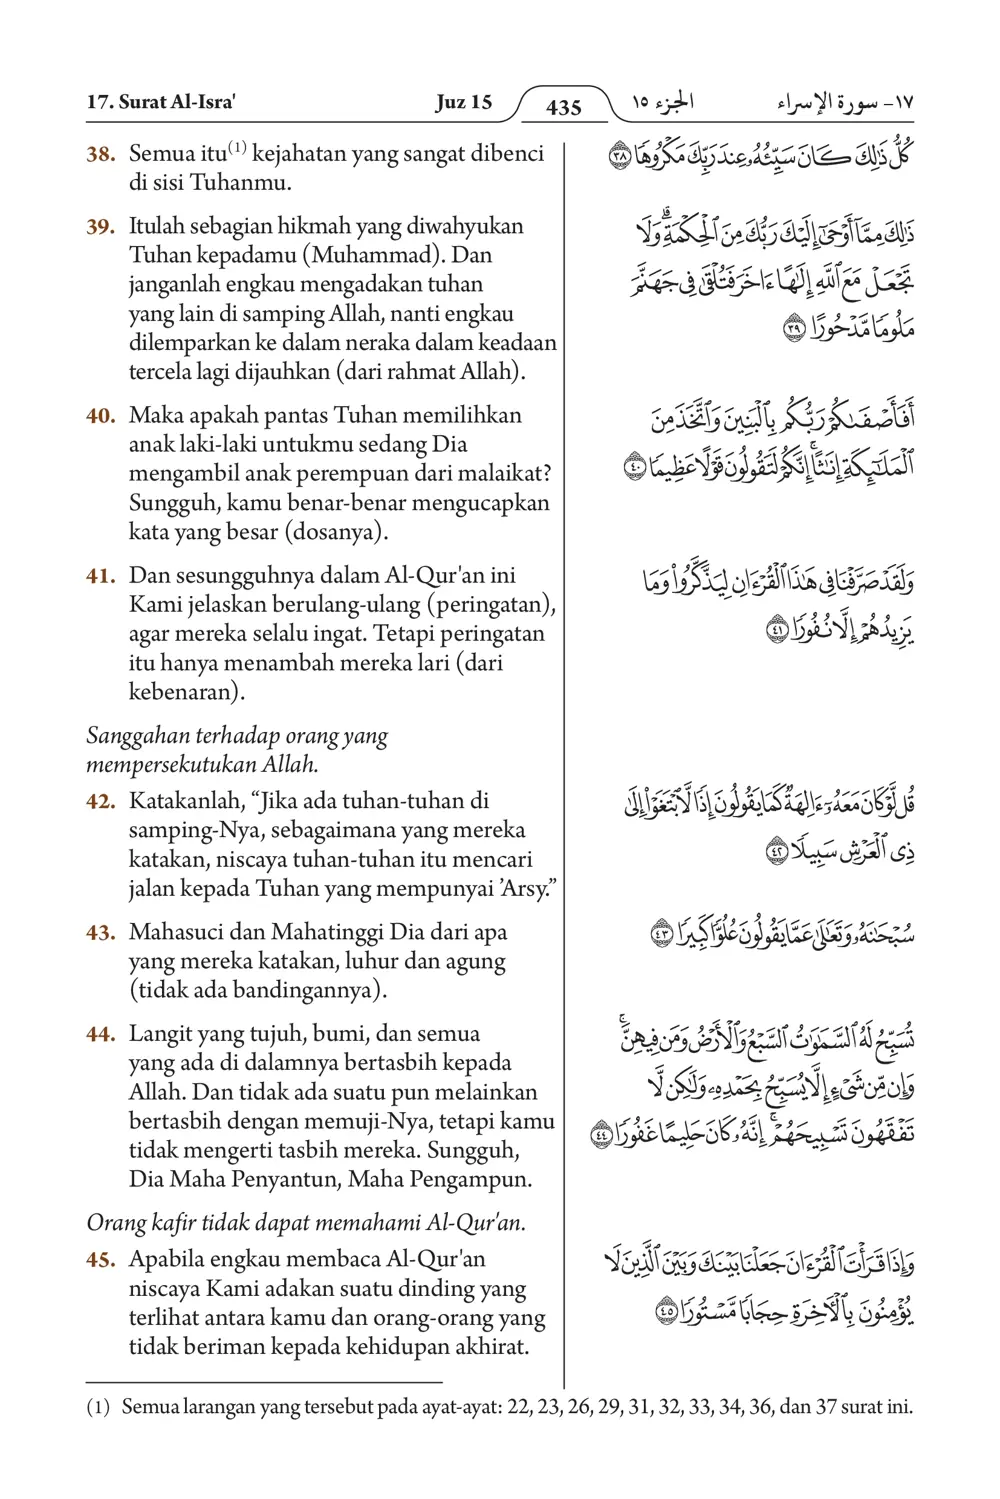 17. Surat Al-Isra' Juz 15 435 الجزء ١٥ ١٧- سورة الإسراء
38. Semua itu(1) kejahatan yang sangat dibenci
di sisi Tuhanmu.
39. Itulah sebagian hikmah yang diwahyukan
Tuhan kepadamu (Muhammad). Dan
janganlah engkau mengadakan tuhan
yang lain di samping Allah, nanti engkau
dilemparkan ke dalam neraka dalam keadaan
tercela lagi dijauhkan (dari rahmat Allah).
40. Maka apakah pantas Tuhan memilihkan
anak laki-laki untukmu sedang Dia
mengambil anak perempuan dari malaikat?
Sungguh, kamu benar-benar mengucapkan
kata yang besar (dosanya).
41. Dan sesungguhnya dalam Al-Qur'an ini
Kami jelaskan berulang-ulang (peringatan),
agar mereka selalu ingat. Tetapi peringatan
itu hanya menambah mereka lari (dari
kebenaran).
Sanggahan terhadap orang yang
mempersekutukan Allah.
42. Katakanlah, “Jika ada tuhan-tuhan di
samping-Nya, sebagaimana yang mereka
katakan, niscaya tuhan-tuhan itu mencari
jalan kepada Tuhan yang mempunyai ’Arsy.”
43. Mahasuci dan Mahatinggi Dia dari apa
yang mereka katakan, luhur dan agung
(tidak ada bandingannya).
44. Langit yang tujuh, bumi, dan semua
yang ada di dalamnya bertasbih kepada
Allah. Dan tidak ada suatu pun melainkan
bertasbih dengan memuji-Nya, tetapi kamu
tidak mengerti tasbih mereka. Sungguh,
Dia Maha Penyantun, Maha Pengampun.
Orang kafir tidak dapat memahami Al-Qur'an.
45. Apabila engkau membaca Al-Qur'an
niscaya Kami adakan suatu dinding yang
terlihat antara kamu dan orang-orang yang
tidak beriman kepada kehidupan akhirat.
كُلُّ ذَٰلِكَ كَانَ سَيِّئُهُۥ عِندَ رَبِّكَ مَكْرُوهًا ٣٨
ذَٰلِكَ مِمَّآ أَوْحَىٰٓ إِلَيْكَ رَبُّكَ مِنَ ٱلْحِكْمَةِ ۗ وَلَا
تَجْعَلْ مَعَ ٱللَّهِ إِلَٰهًا ءَاخَرَ فَتُلْقَىٰ فِى جَهَنَّمَ
مَلُومًا مَّدْحُورًا ٣٩
أَفَأَصْفَىٰكُمْ رَبُّكُم بِٱلْبَنِينَ وَٱتَّخَذَ مِنَ
ٱلْمَلَٰٓئِكَةِ إِنَٰثًا ۚ إِنَّكُمْ لَتَقُولُونَ قَوْلًا عَظِيمًا ٤٠
وَلَقَدْ صَرَّفْنَا فِى هَٰذَا ٱلْقُرْءَانِ لِيَذَّكَّرُوا۟ وَمَا
يَزِيدُهُمْ إِلَّا نُفُورًا ٤١
قُل لَّوْ كَانَ مَعَهُۥٓ ءَالِهَةٌ كَمَا يَقُولُونَ إِذًا لَّٱبْتَغَوْا۟ إِلَىٰ
ذِى ٱلْعَرْشِ سَبِيلًا ٤٢
سُبْحَٰنَهُۥ وَتَعَٰلَىٰ عَمَّا يَقُولُونَ عُلُوًّا كَبِيرًا ٤٣
تُسَبِّحُ لَهُ ٱلسَّمَٰوَٰتُ ٱلسَّبْعُ وَٱلْأَرْضُ وَمَن فِيهِنَّ ۚ
وَإِن مِّن شَىْءٍ إِلَّا يُسَبِّحُ بِحَمْدِهِۦ وَلَٰكِن لَّا
تَفْقَهُونَ تَسْبِيحَهُمْ ۗ إِنَّهُۥ كَانَ حَلِيمًا غَفُورًا ٤٤
وَإِذَا قَرَأْتَ ٱلْقُرْءَانَ جَعَلْنَا بَيْنَكَ وَبَيْنَ ٱلَّذِينَ لَا
يُؤْمِنُونَ بِٱلْءَاخِرَةِ حِجَابًا مَّسْتُورًا ٤٥
(1) Semua larangan yang tersebut pada ayat-ayat: 22, 23, 26, 29, 31, 32, 33, 34, 36, dan 37 surat ini.